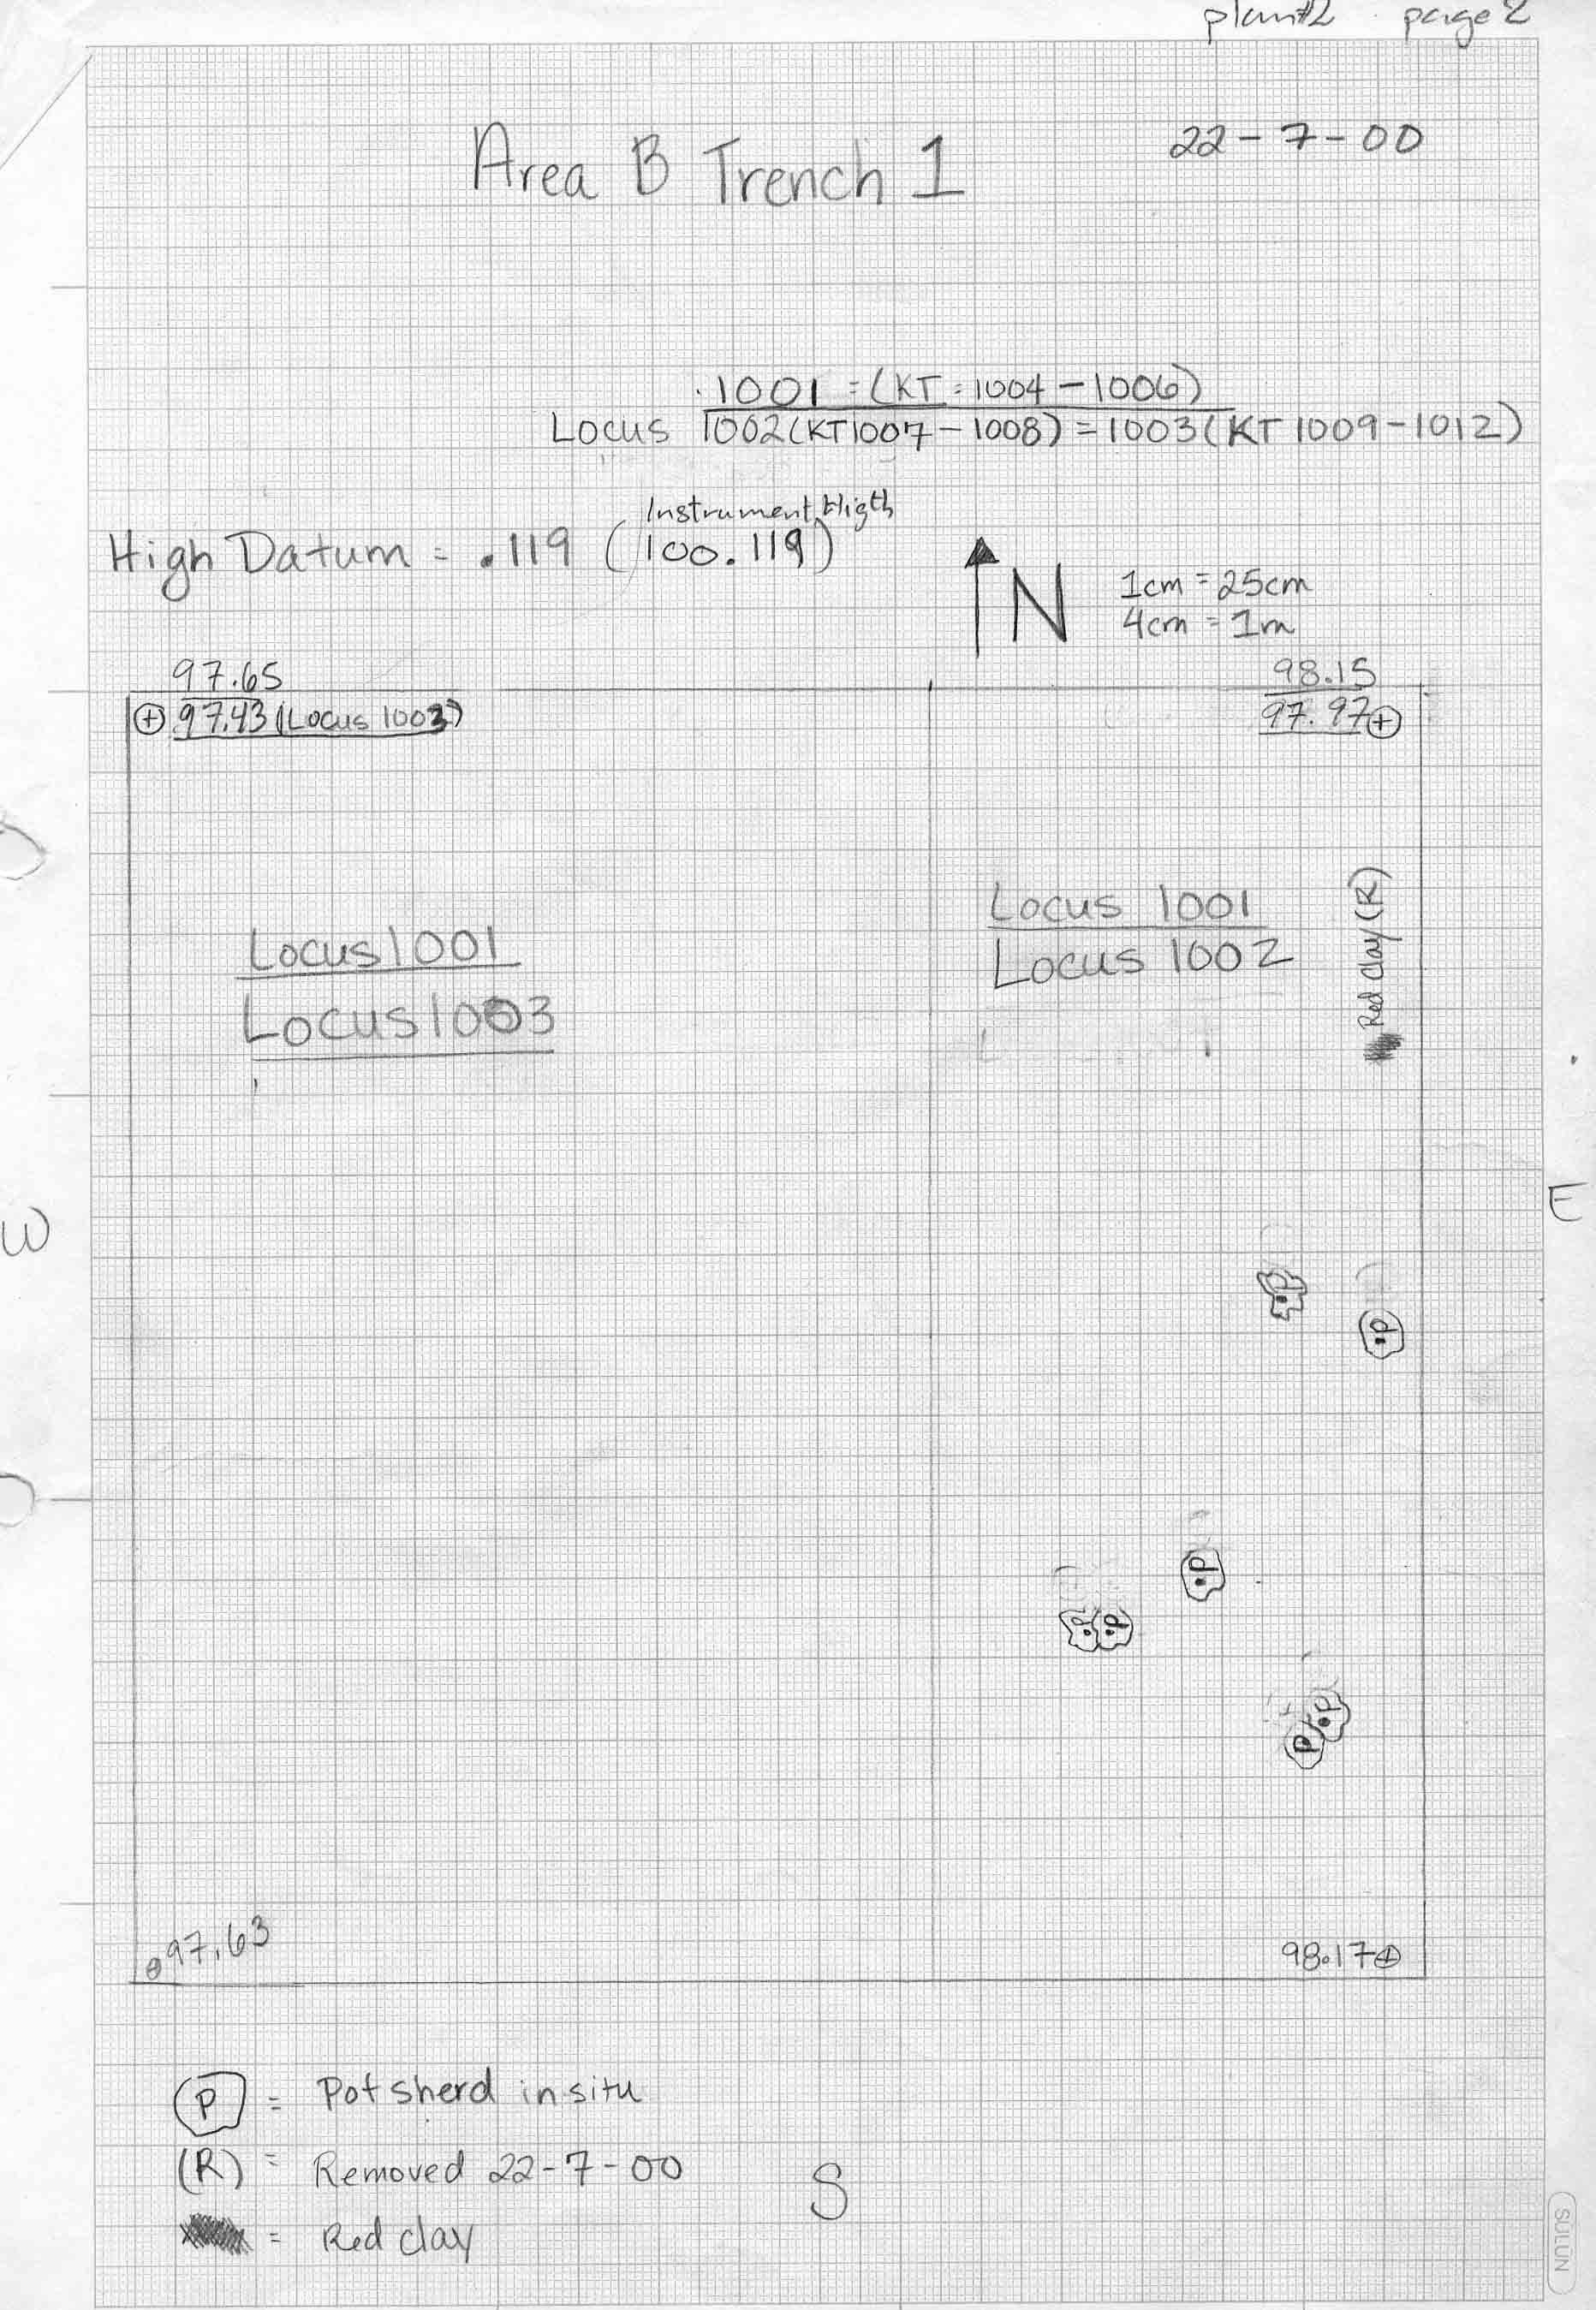 plan#2 page 2
Area B Trench 1
22-7-00
1001 = (KT = 1004 - 1006)
Locus 1002(KT1007 - 1008) = 1003(KT 1009-1012)
Instrument Higth
High Datum = .119 (100.119)
N
1cm = 25cm
4cm = 1m
97.65
97.43 (Locus 1003)
98.15
97.97
Locus 1001
Locus 1003
Locus 1001
Locus 1002
Red clay (R)
W
E
P
P
P
P
P
P
P
97.63
98.17
P = Pot sherd in situ
(R) = Removed 22-7-00
= Red clay
S
SULUN